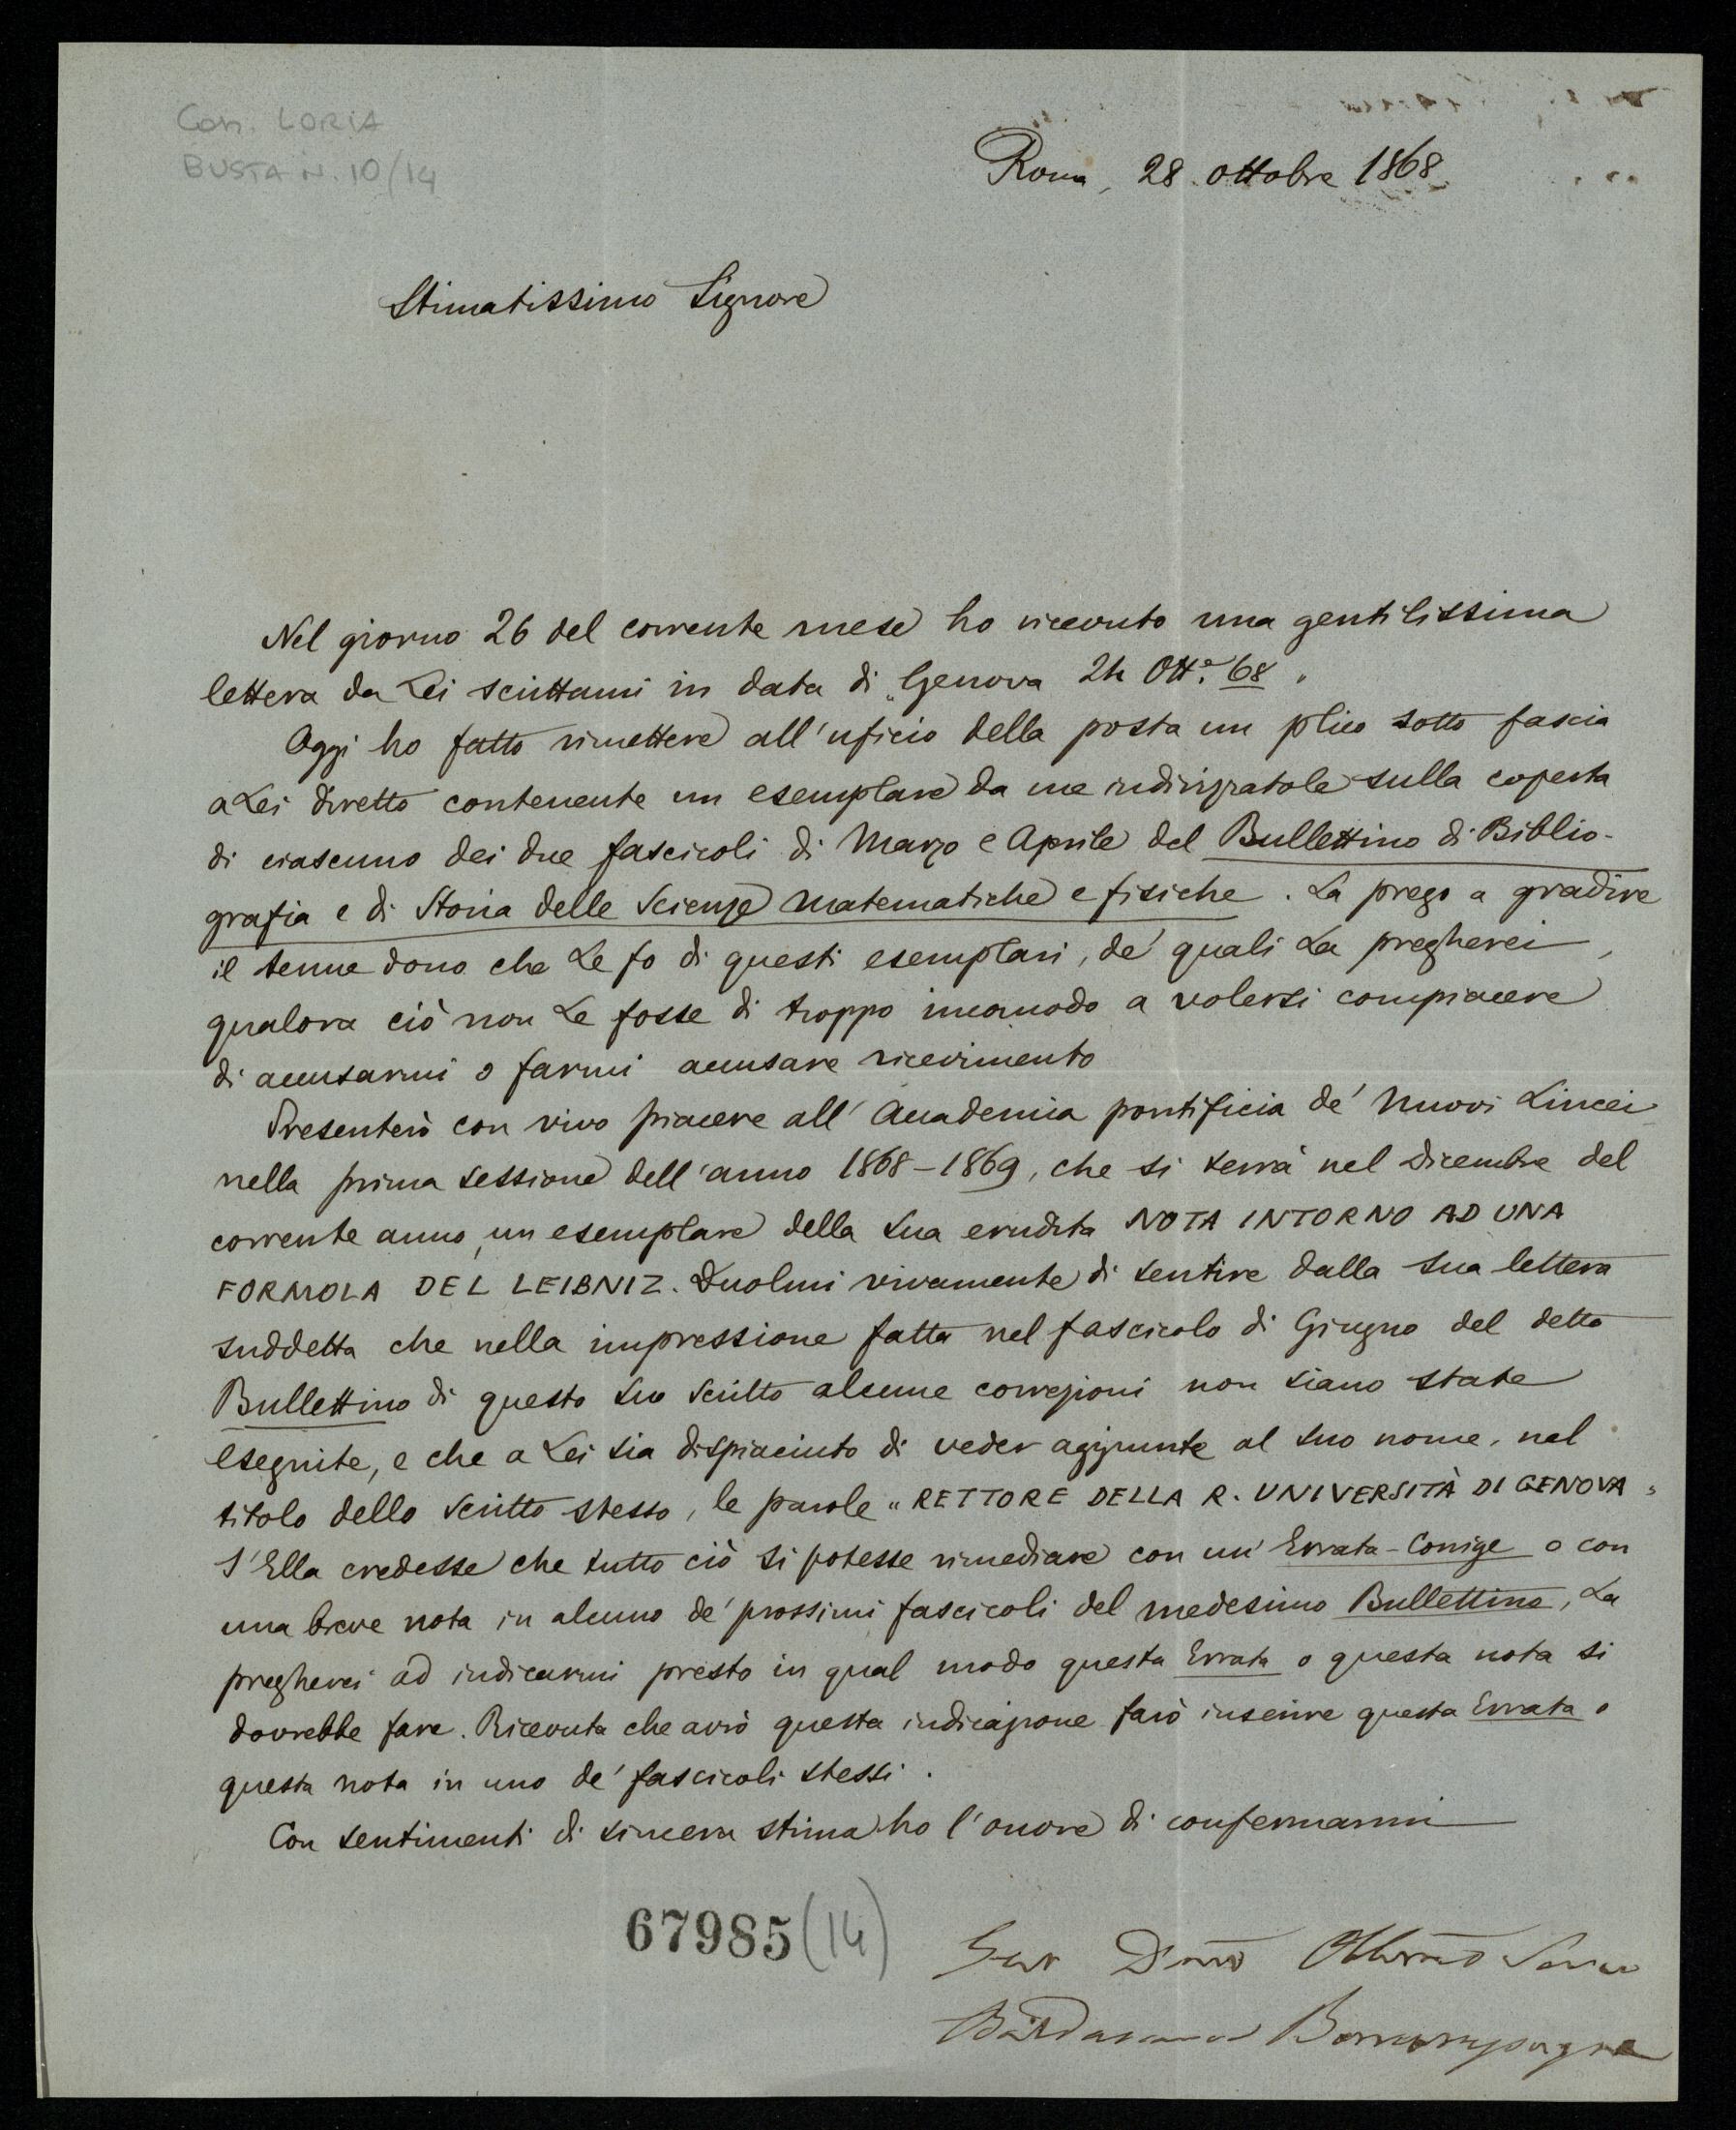 Con. LORIA
BUSTA N. 10/14
Roma, 28 ottobre 1868
Stimatissimo Signore
Nel giorno 26 del corrente mese ho ricevuto una gentilissima
lettera da Lei scrittami in data di „Genova 24 Ott.e 68„.
Aggi ho fatto rimettere all'uficio della posta un plico sotto fascia
a Lei diretto contenente un esemplare da me indirizzatole sulla coperta
di ciascuno dei due fascicoli di Marzo e Aprile del Bullettino di Biblio-
grafia e di Storia delle Scienze Matematiche e fisiche. La prego a gradire
il tenue dono che Le fo di questi esemplari, de' quali La pregherei,
qualora ciò non Le fosse di troppo incomodo a volersi compiacere
di accusarmi o farmi accusare ricevimento
Presenterò con vivo piacere all'Accademia pontificia de' Nuovi Lincei
nella prima sessione dell'anno 1868–1869, che si terrà nel Dicembre del
corrente anno, un esemplare della sua erudita NOTA INTORNO AD UNA
FORMOLA DEL LEIBNIZ. Duolmi vivamente di sentire dalla sua lettera
suddetta che nella impressione fatta nel fascicolo di Giugno del detto
Bullettino di questo suo scritto alcune correzioni non siano state
eseguite, e che a Lei sia dispiaciuto di veder aggiunte al suo nome, nel
titolo dello scritto stesso, le parole „RETTORE DELLA R. UNIVERSITÀ DI GENOVA„
S'Ella credesse che tutto ciò si potesse rimediare con un' Errata-Corrige o con
una breve nota in alcuno de' prossimi fascicoli del medesimo Bullettino, La
pregherei ad indicarmi presto in qual modo questa Errata o questa nota si
dovrebbe fare. Ricevuta che avrò questa indicazione farò inserire questa Errata o
questa nota in uno de' fascicoli stessi.
Con sentimenti di sincera stima ho l'onore di confermarmi
67985 (14)
Suo Dmo Obbmo Servo
Baldassarre Boncompagni